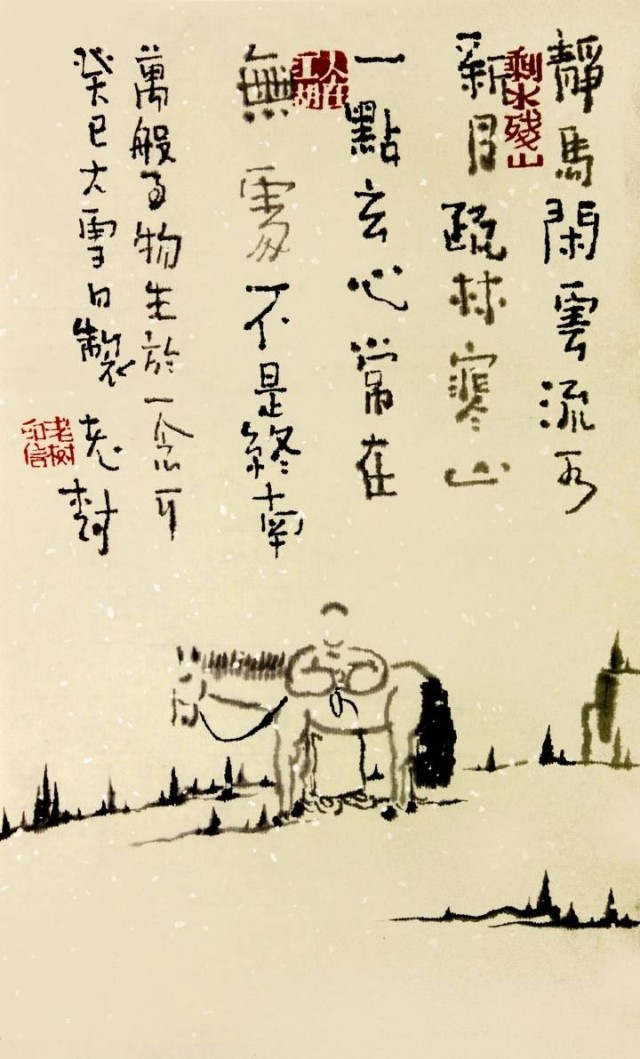 靜馬閑雲流水
剩水殘山
新月疏林寒山
人在江湖
一點玄心常在
無處不是終南
萬般事物生於一念耳
癸巳大雪日製 老樹
老树印信